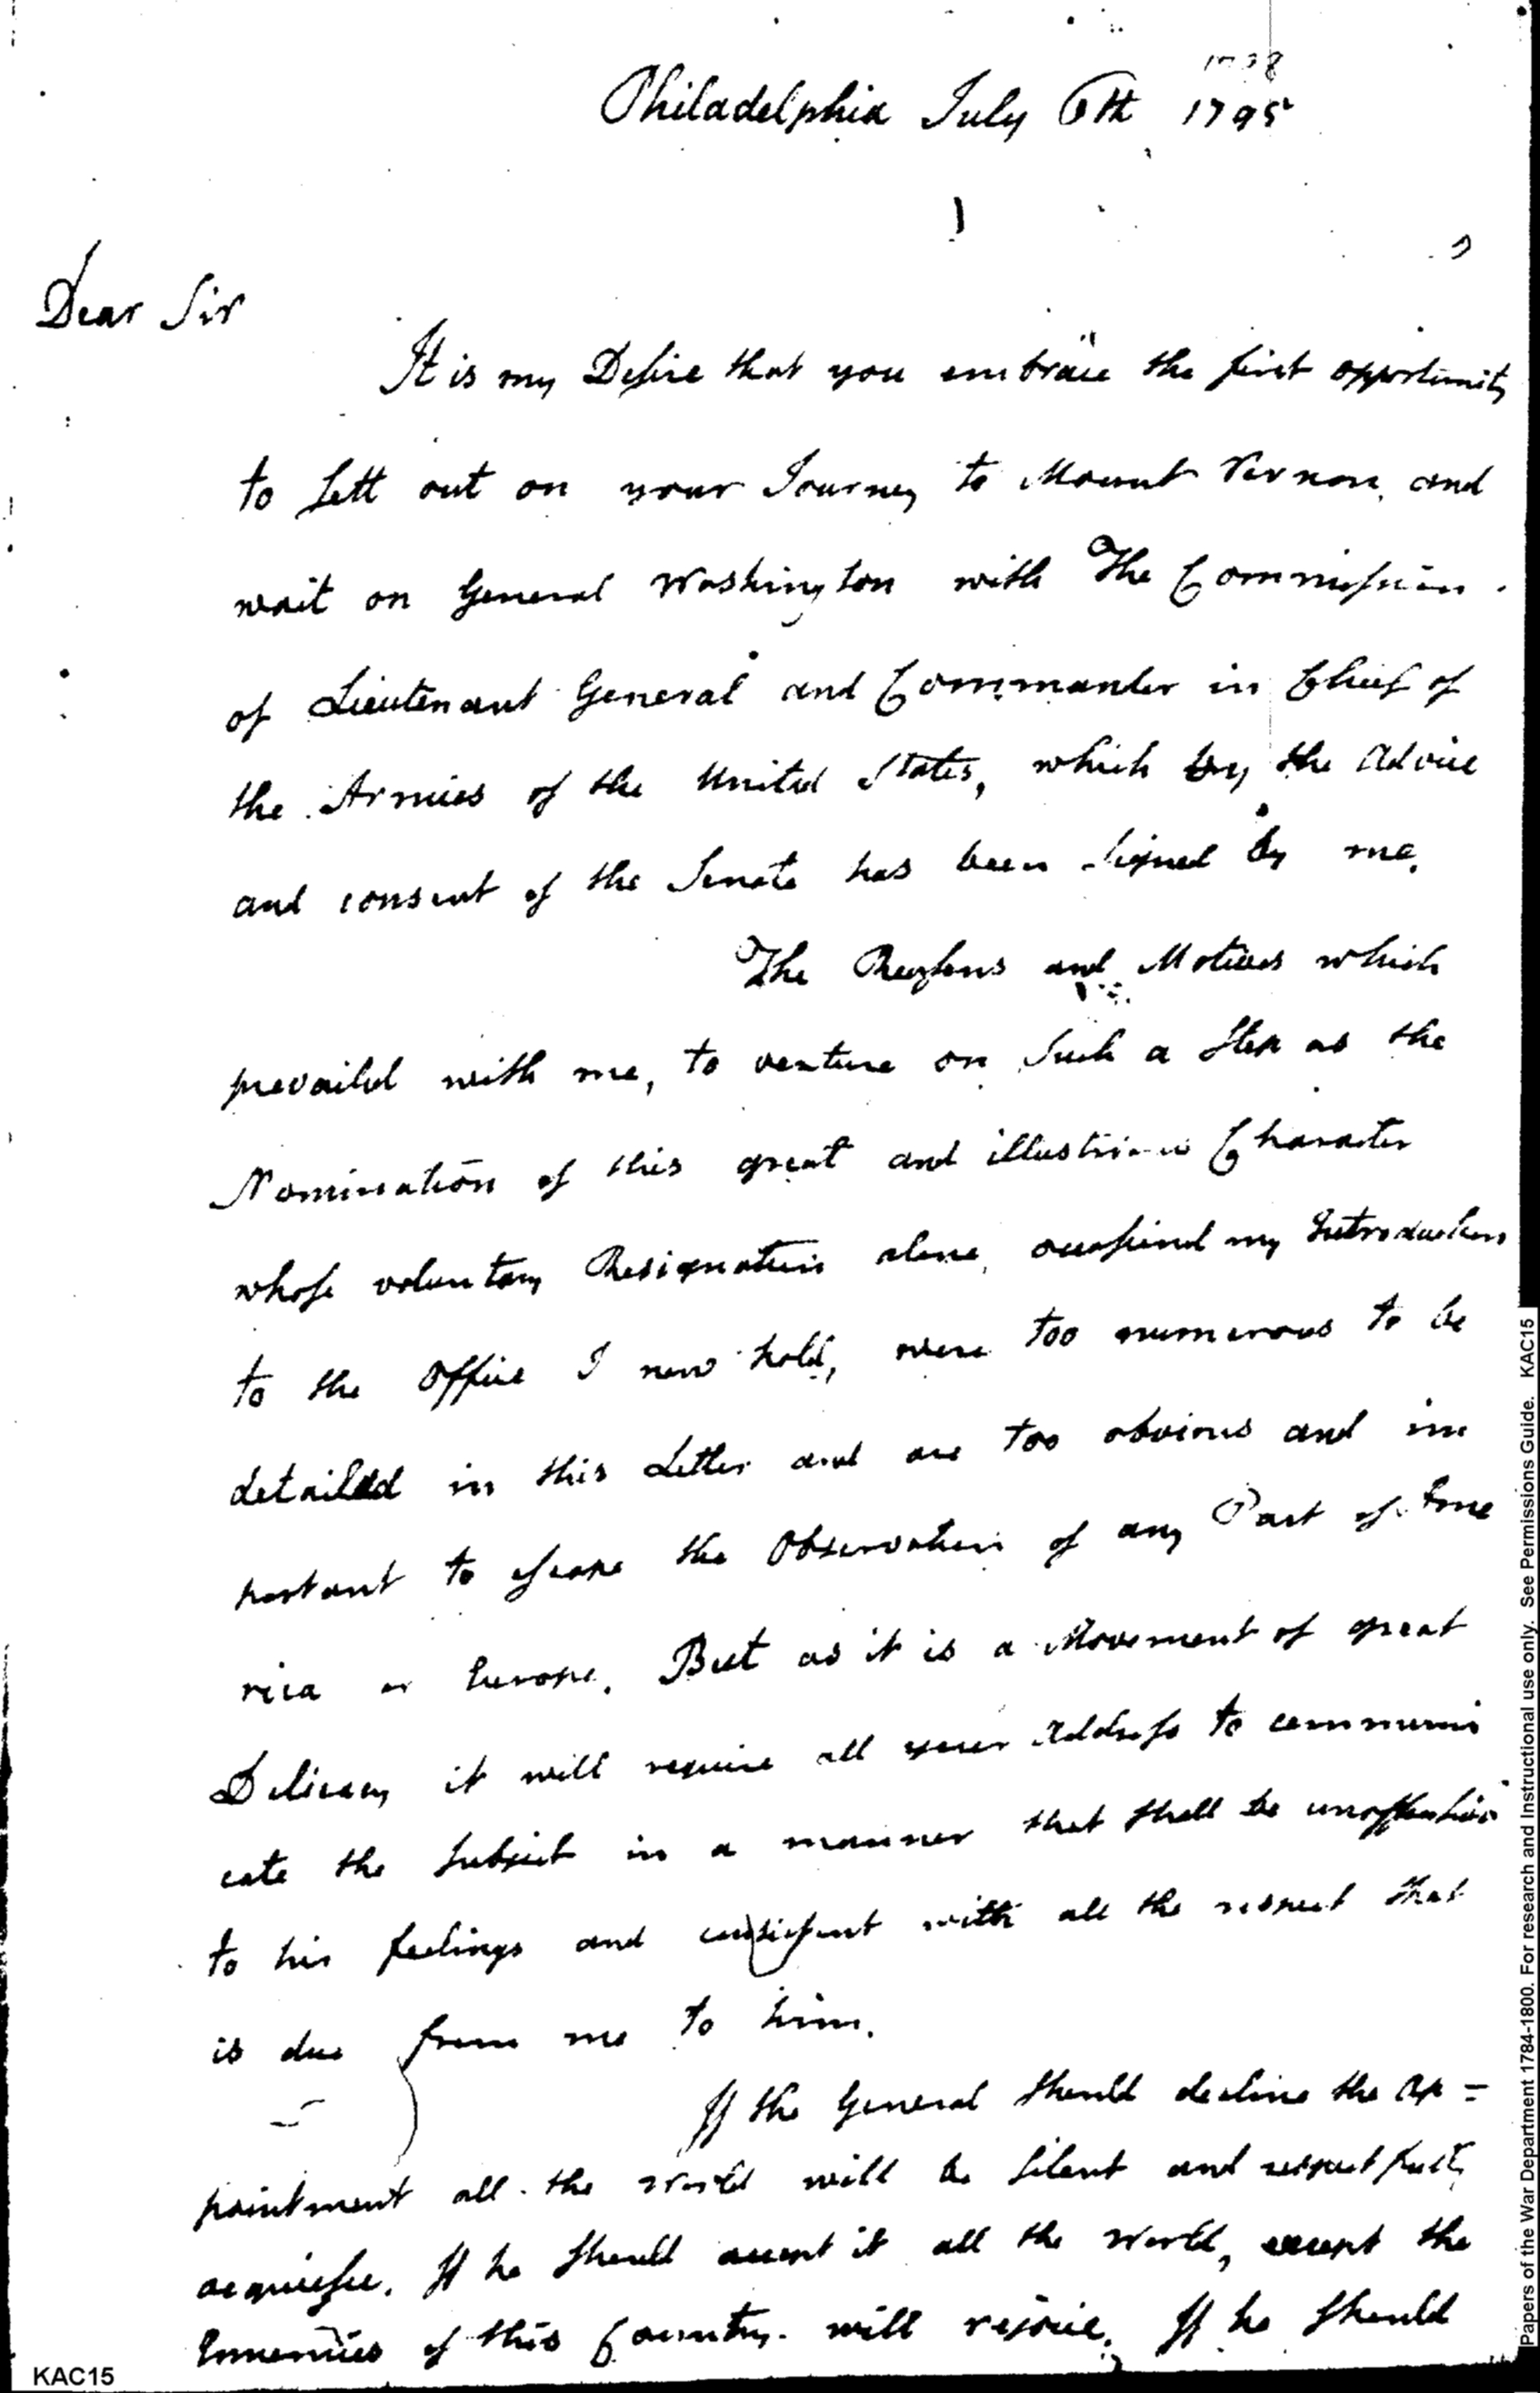 1798
Philadelphia July 6th 1795
Dear Sir
It is my Desire that you embrace the first opportunity
to sett out on your Journey to Mount Vernon, and
wait on General Washington with The Commission
of Lieutenant General and Commander in Chief of
the Armies of the United States, which by the Advice
and consent of the Senate has been signed by me.
The Reasons and Motives which
prevailed with me, to venture on such a Step as the
Nomination of this great and illustrious Character
whose voluntary Resignation alone, occasined my Introduction
to the Office I now hold, were too numerous to be
detailed in this Letter and are too obvious and im
portant to escape the Observation of any Part of Ame
rica or Europe. But as it is a Movement of great
Delicacy it will require all your Address to communi
cate the Subject in a manner that shall be unoffensive
to his feelings and consistent with all the respect that
is due from me to him.
If the General should decline the Ap=
pointment all the World will be silent and respectfully
acquiesce. If he should accept it all the World, except the
Ennemies of this Country will rejoice. If he should
KAC15
Papers of the War Department 1784-1800. For research and Instructional use only. See Permissions Guide. KAC15